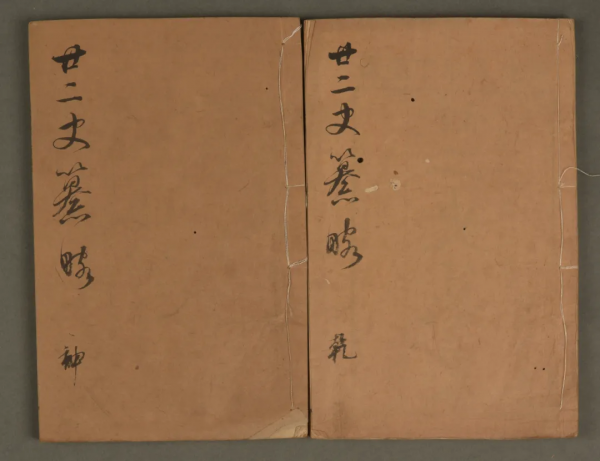 廿二史纂略
乾
廿二史纂略
坤